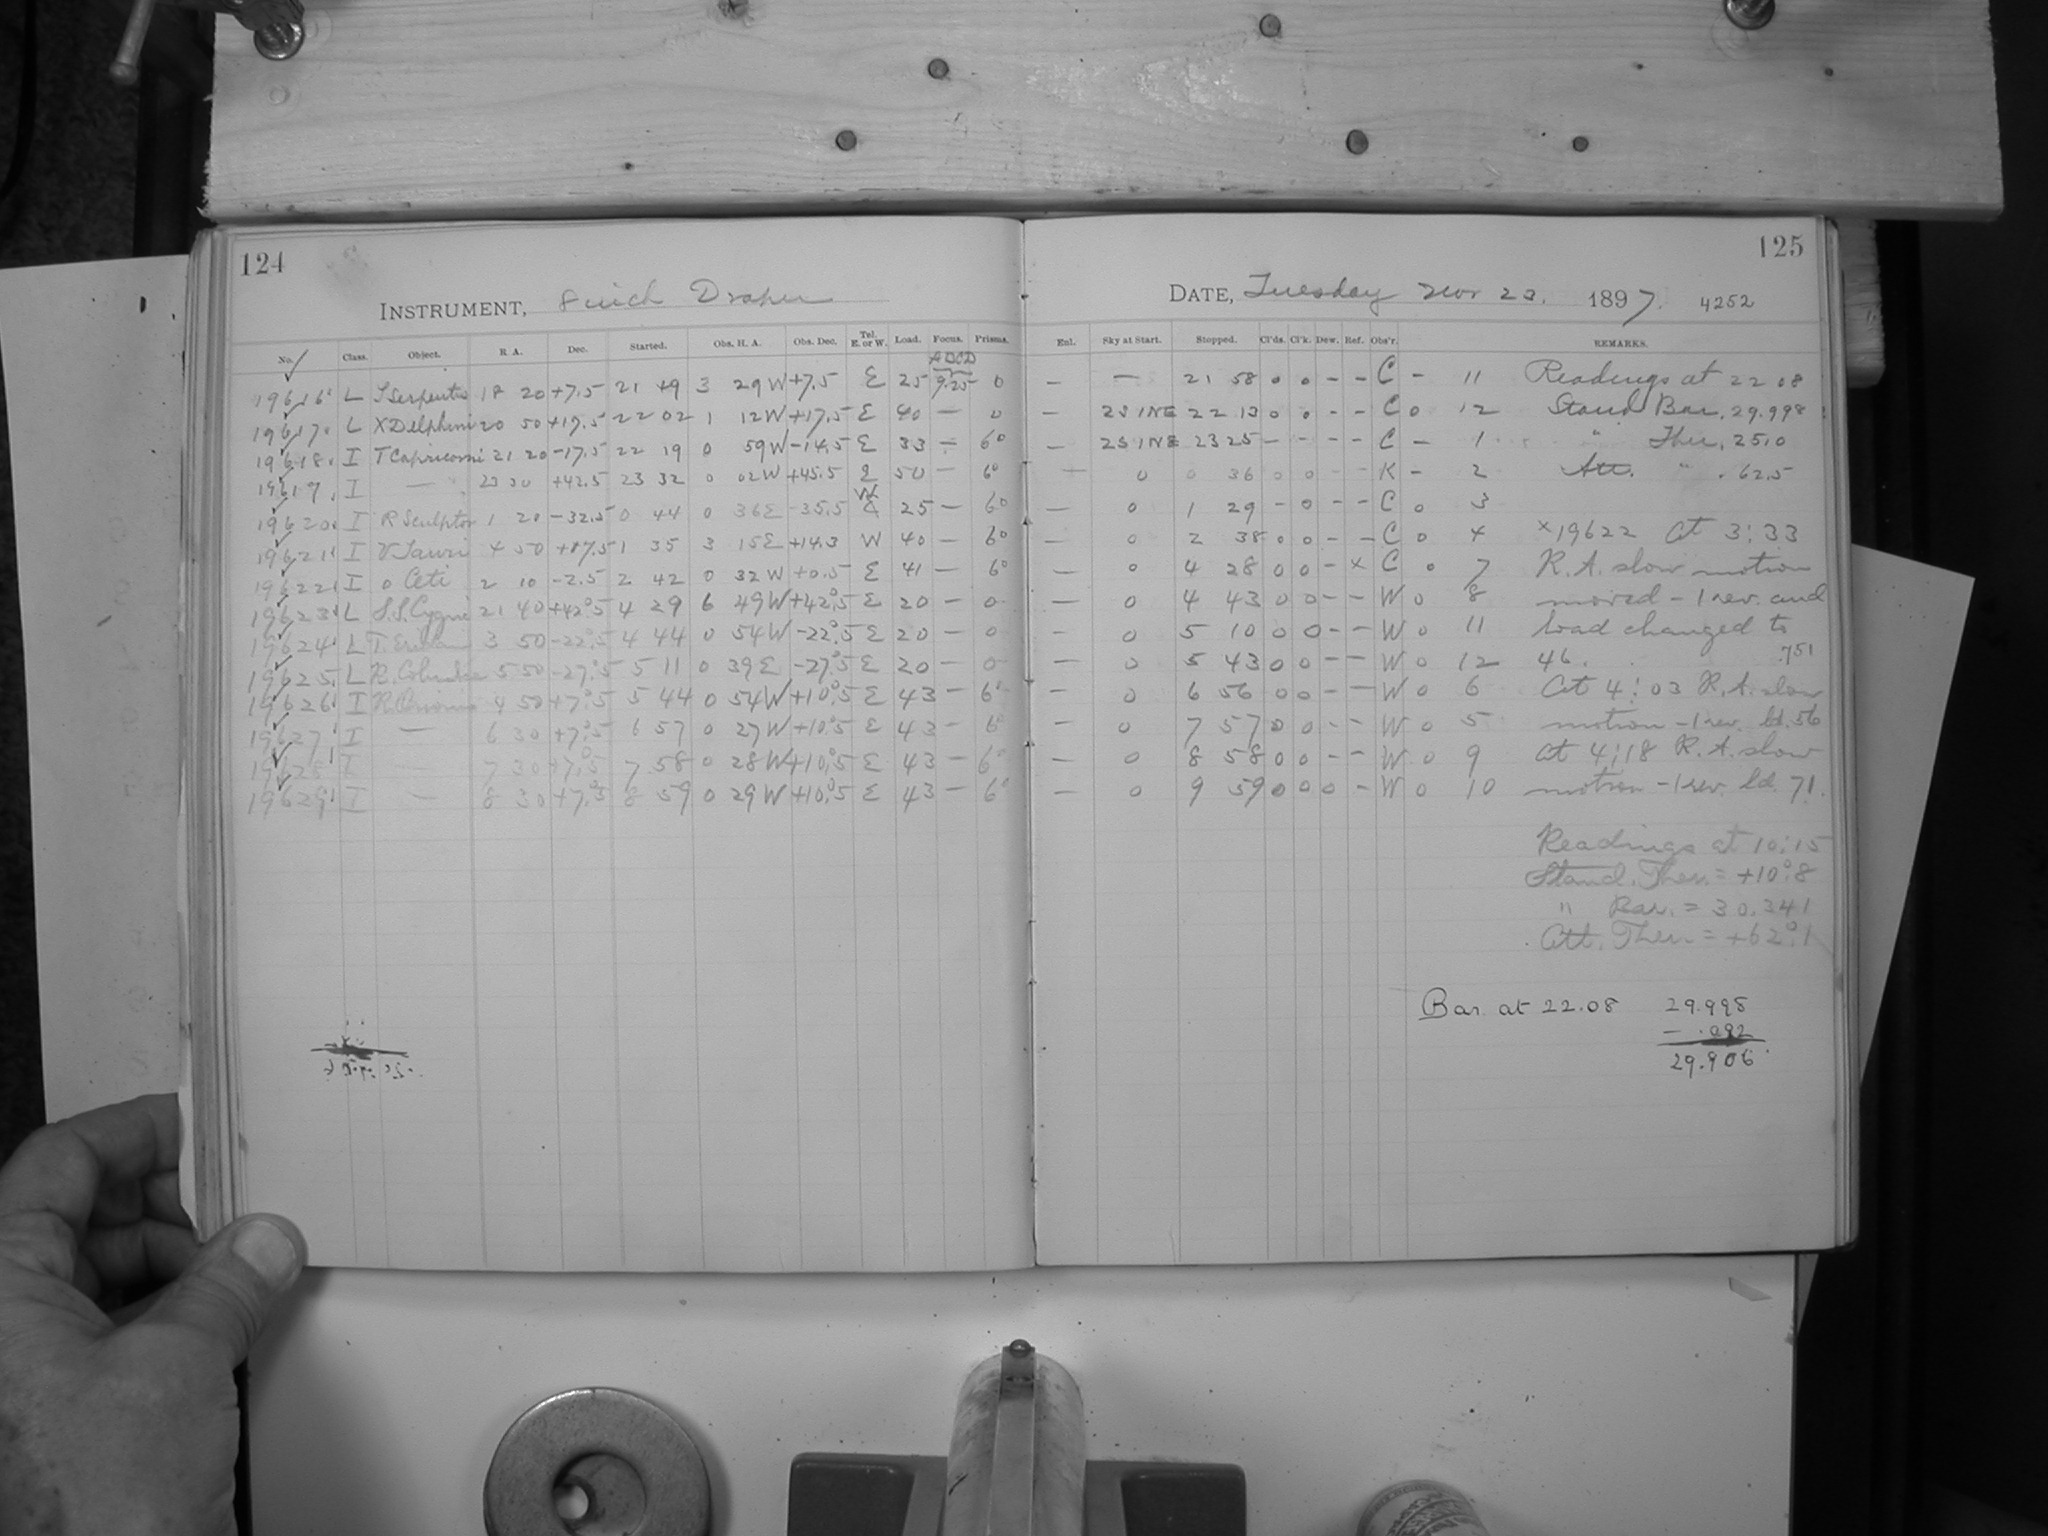 124
INSTRUMENT, 8 inch Draper
No. Class. Object. R. A. Dec. Started. Obs. H. A. Obs. Dec. Tel. E. or W. Load. Focus. Prisms.
ABCD
19616 L S Serpentis 18 20 +7.5 21 49 3 29 W +7.5 E 25 9.25 0
19617 L X Delphini 20 50 +17.5 22 02 1 12 W +17.5 E 40 — 0
19618 I T Capricorni 21 20 -17.5 22 19 0 59 W -14.5 E 33 — 6°
19619 I — 23 30 +42.5 23 32 0 02 W +45.5 E 50 — 6°
19620 I R Sculptor 1 20 -32.5 0 44 0 36 E -35.5 W 25 — 6°
19621 I V Tauri 4 50 +17.5 1 35 3 15 E +14.3 W 40 — 6°
19622 I o Ceti 2 10 -2.5 2 42 0 32 W +0.5 E 41 — 6°
19623 L S.S. Cygni 21 40 +42°.5 4 29 6 49 W +42°.5 E 20 — 0
19624 L T. Eridani 3 50 -22°.5 4 44 0 54 W -22°.5 E 20 — 0
19625 L R. Columbae 5 50 -27°.5 5 11 0 39 E -27°.5 E 20 — 0
19626 I R. Orionis 4 50 +7°.5 5 44 0 54 W +10°.5 E 43 — 6°
19627 I — 6 30 +7°.5 6 57 0 27 W +10°.5 E 43 — 6°
19628 I — 7 30 +7°.5 7 58 0 28 W +10°.5 E 43 — 6°
19629 I — 8 30 +7°.5 8 59 0 29 W +10°.5 E 43 — 6°
125
DATE, Tuesday Nov 23. 1897. 4252
Enl. Sky at Start. Stopped. Cl'ds. Cl'k. Dew. Ref. Obs'r. REMARKS.
— — 21 58 0 0 - - C - 11 Readings at 22 08
— 2S INE 22 13 0 0 - - C 0 12 Stand Bar. 29.998
— 2S INE 23 25 - - - - C - 1 " Ther. 25.0
— 0 0 36 0 0 - - K - 2 Att. " . 62.5
— 0 1 29 - 0 - - C 0 3
— 0 2 38 0 0 - - C 0 4 x19622 At 3:33
— 0 4 28 0 0 - x C 0 7 R.A. slow motion
— 0 4 43 0 0 - - W 0 8 moved - 1 rev. and
— 0 5 10 0 0 - - W 0 11 load changed to
— 0 5 43 0 0 - - W 0 12 46. 751
— 0 6 56 0 0 - - W 0 6 At 4:03 R.A. slow
— 0 7 57 0 0 - - W 0 5 motion - 1 rev. ld. 56
— 0 8 58 0 0 - - W 0 9 at 4:18 R.A. slow
— 0 9 59 0 0 0 - W 0 10 motion - 1 rev. ld. 71.
Readings at 10:15
Stand. Ther. = +10°.8
" Bar. = 30.341
Att. Ther. = +62°.1
Bar. at 22.08 29.998
- .092
29.906